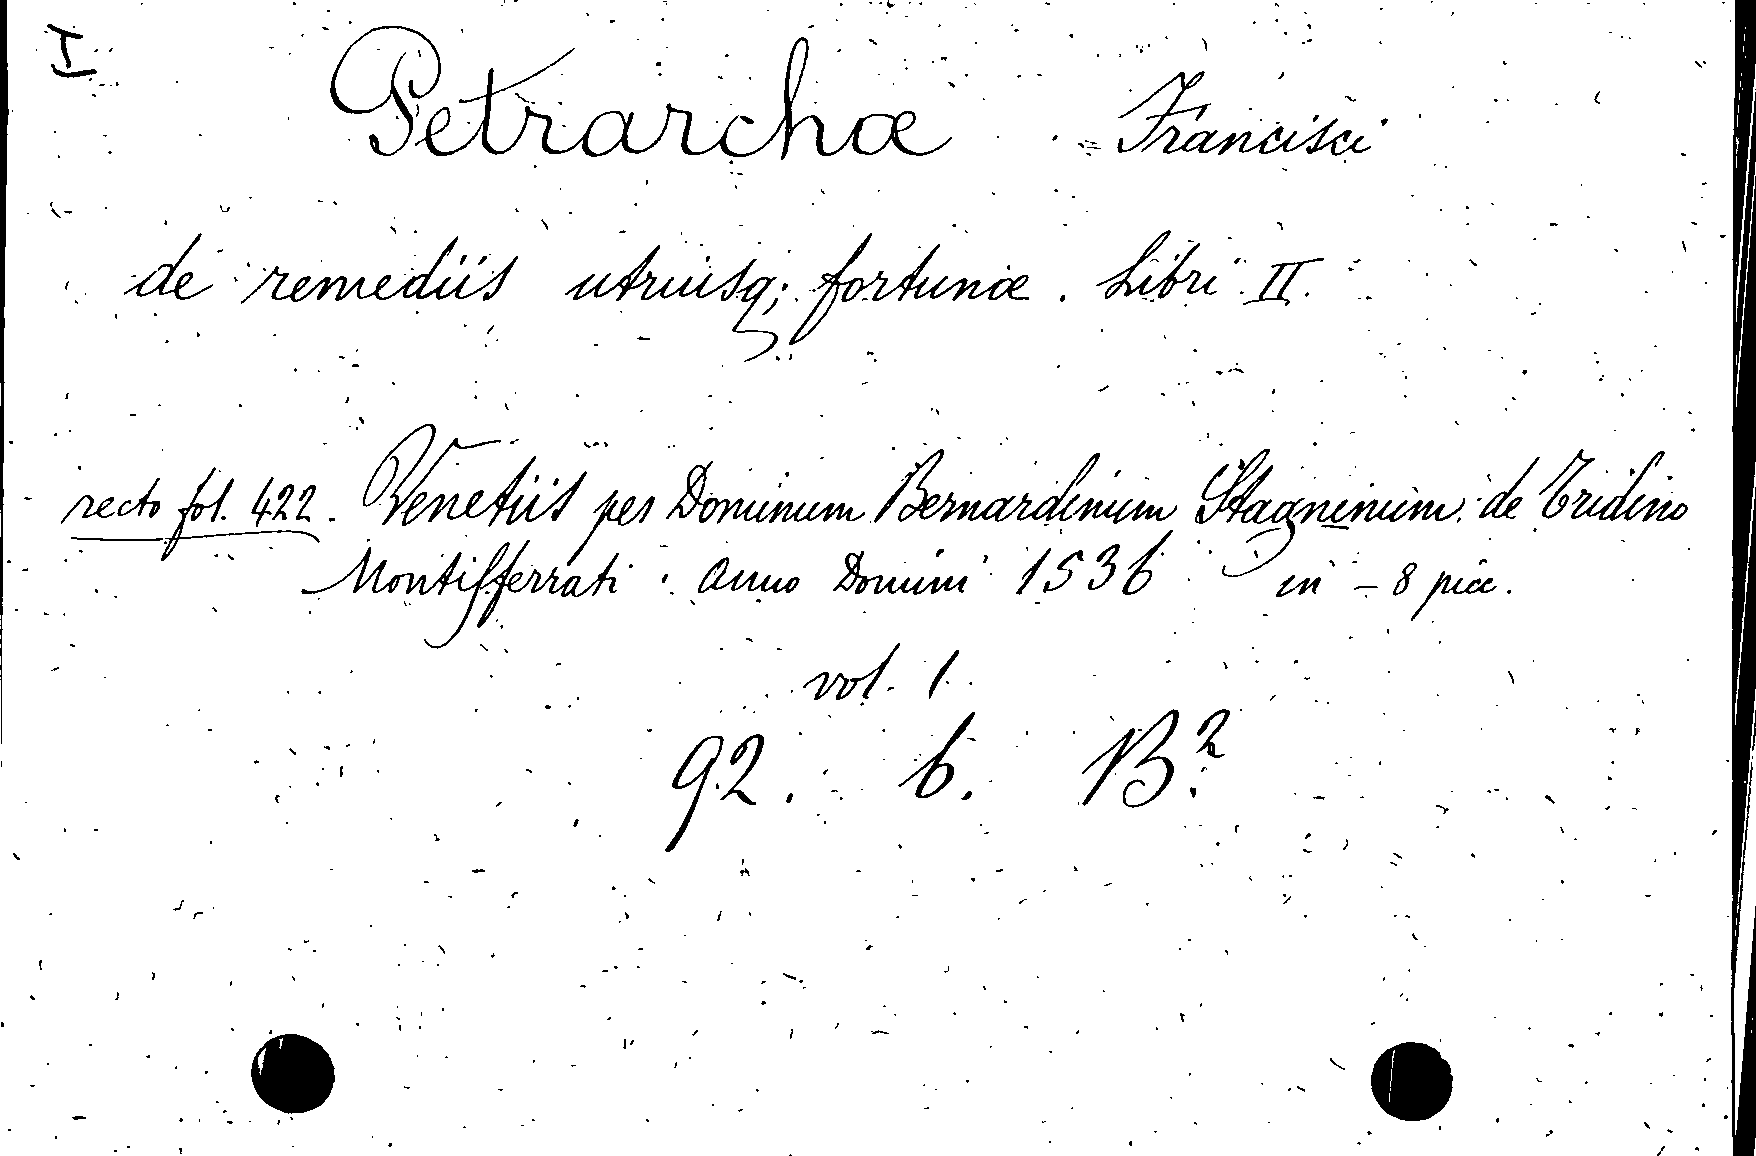 I
Petrarchæ Francisci
de remediis utriusq; fortunæ. Libri II.
recto fol. 422. Venetiis per Dominum Bernardinum Stagninum de Tridino
Montifferrati. Anno Domini 1536 in - 8 picc.
vol. 1.
92. b. B².